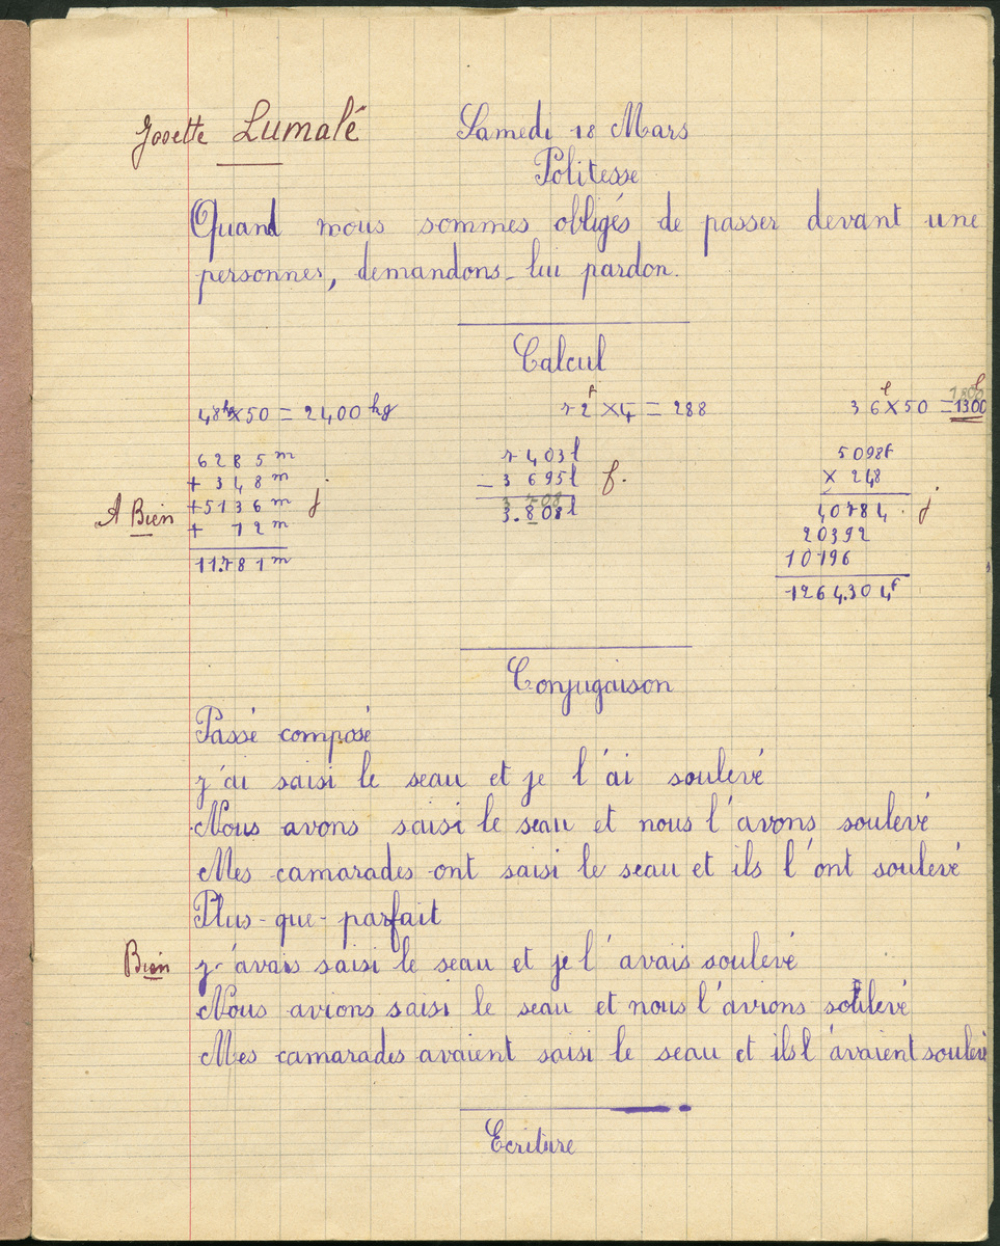 Josette Lumalé
Samedi 18 Mars
Politesse
Quand nous sommes obligés de passer devant une
personnes, demandons-lui pardon.
Calcul
48kg × 50 = 2400 kg
72 f × 4 = 288
36 f × 50 = 1300
1800 f
6285 m
+ 348 m
+5136 m
+ 12 m
11.781 m
j
A Bien
7403 l
- 3695 l
3 708
3.808 l
f.
5098f
× 248
40784.
20392
10196
1264.304f
j
Conjugaison
Passé composé
j'ai saisi le seau et je l'ai soulevé
Nous avons saisi le seau et nous l'avons soulevé
Mes camarades ont saisi le seau et ils l'ont soulevé
Plus-que-parfait
Bien
j'avais saisi le seau et je l'avais soulevé
Nous avions saisi le seau et nous l'avions soulevé
Mes camarades avaient saisi le seau et ils l'avaient soulevé
Ecriture